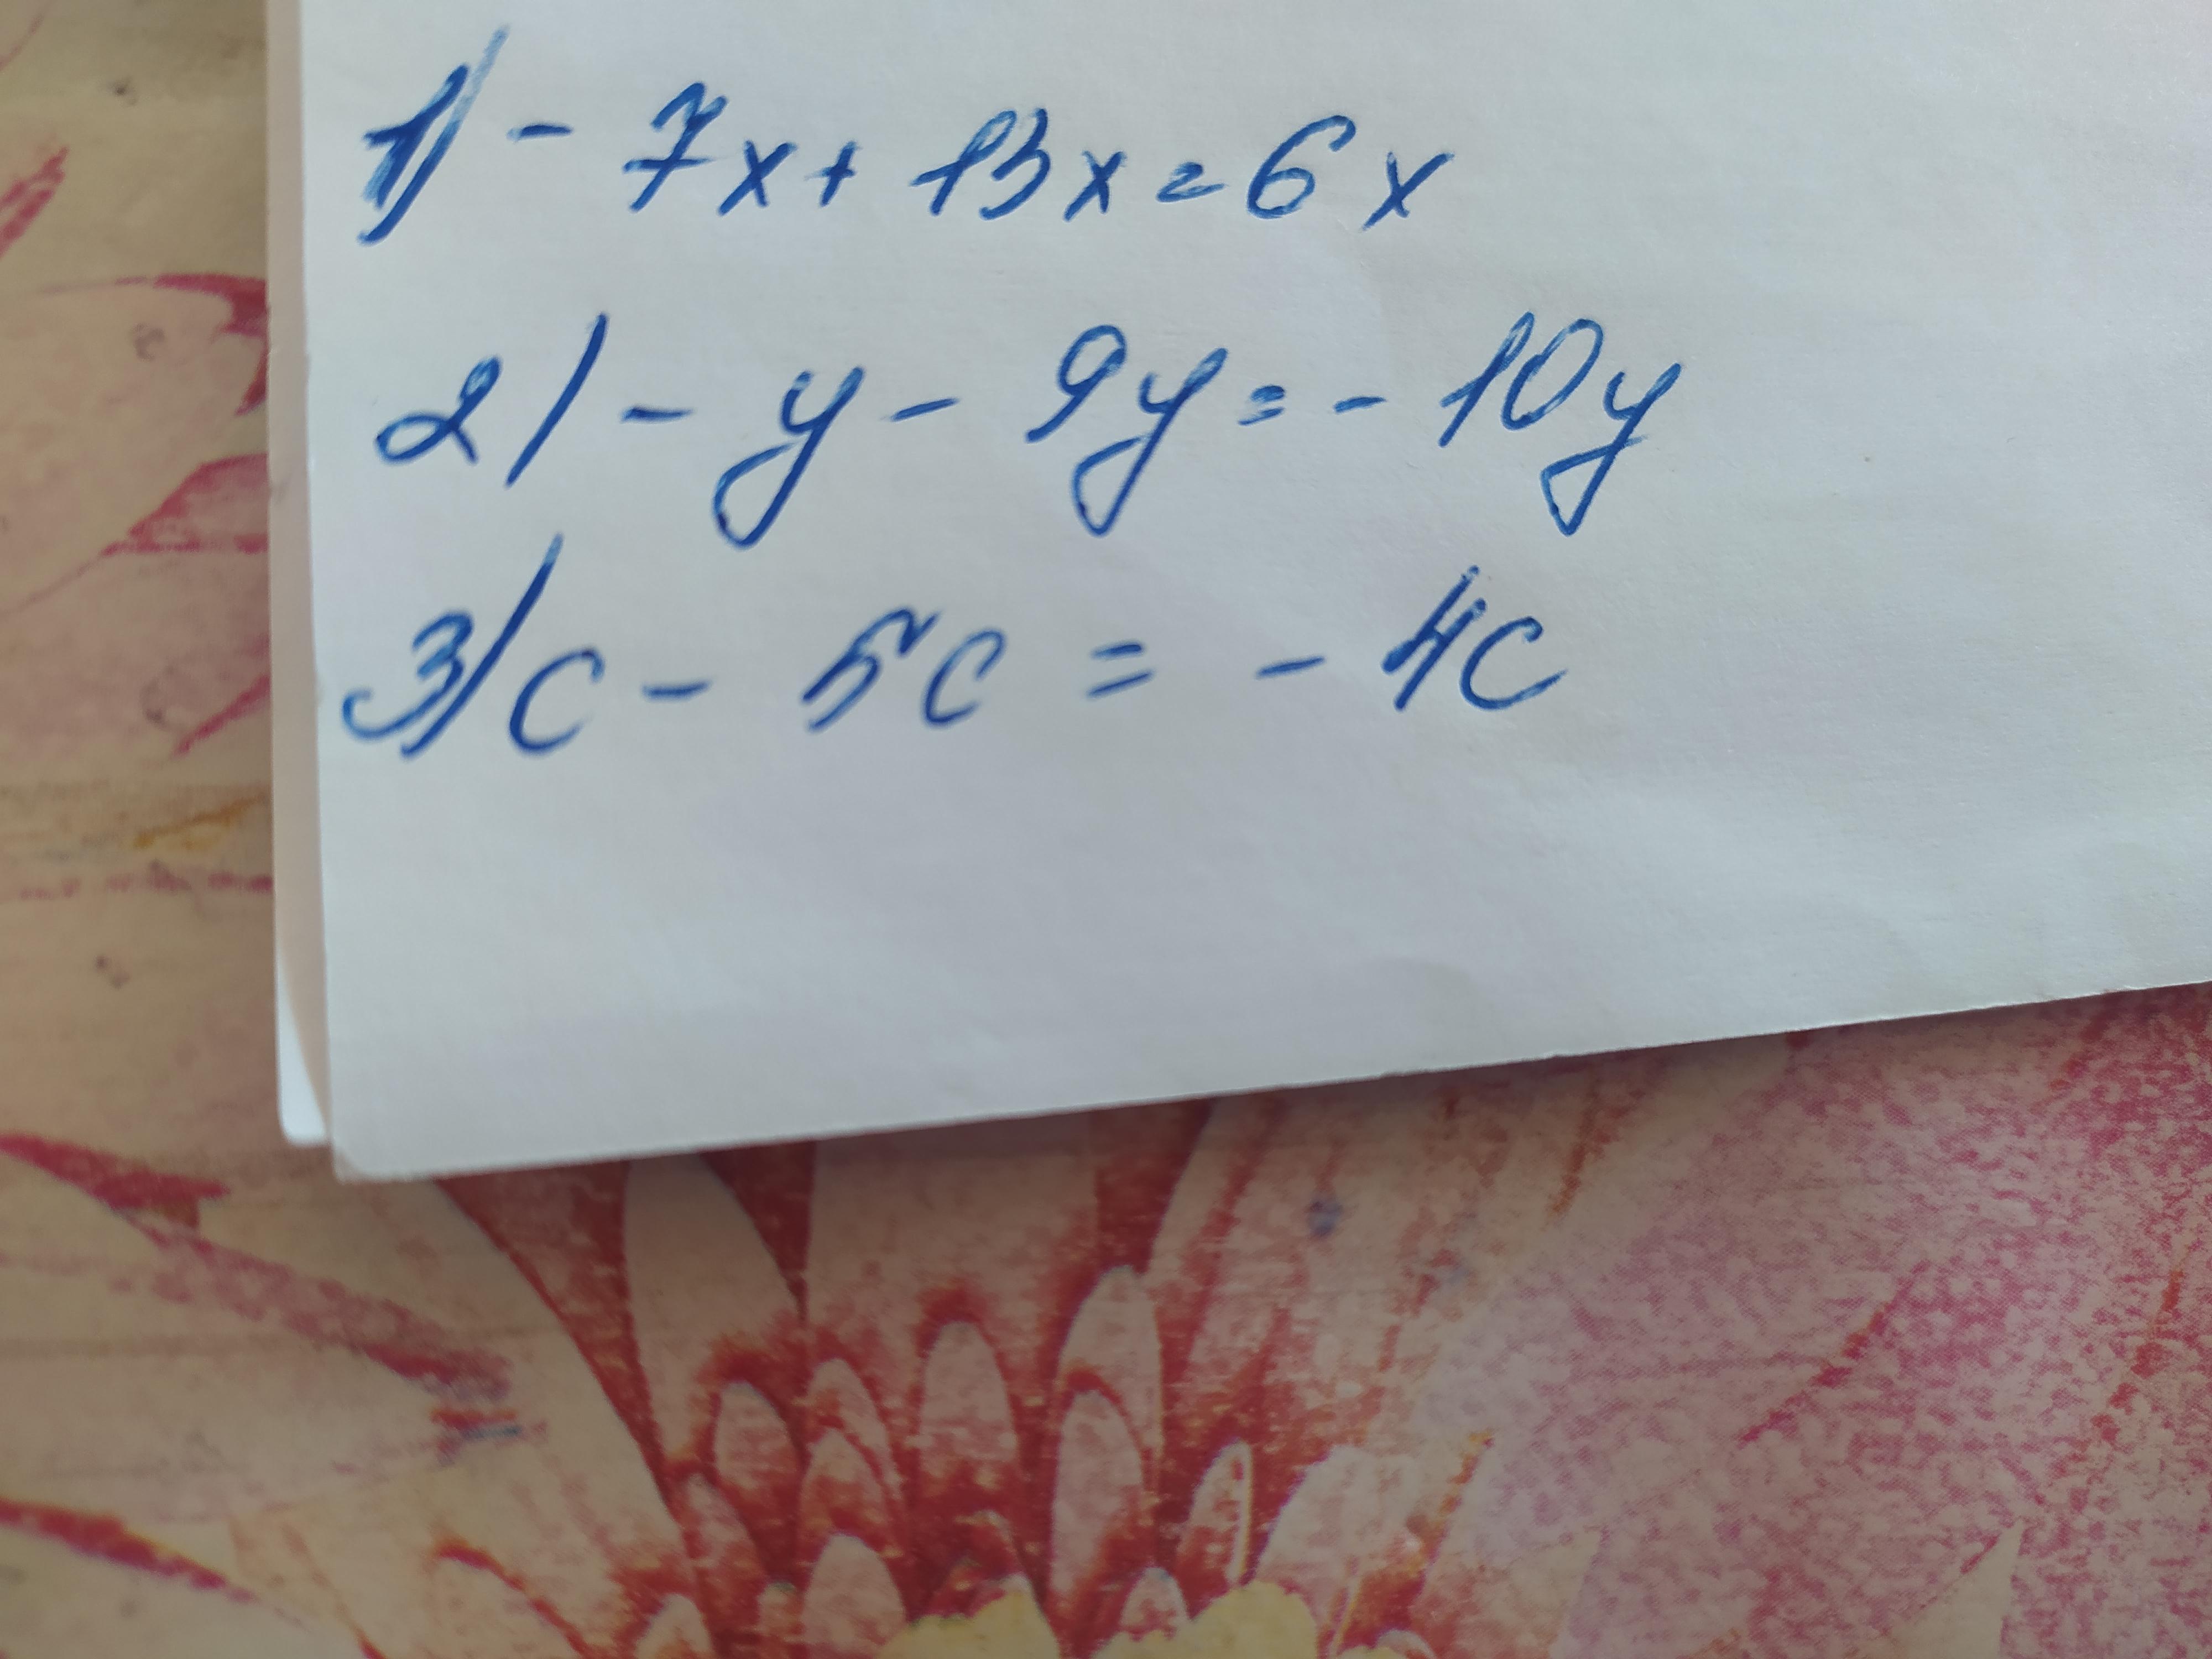 1) - 7x + 13x = 6x
2) - y - 9y = - 10y
3) c - 5c = - 4c